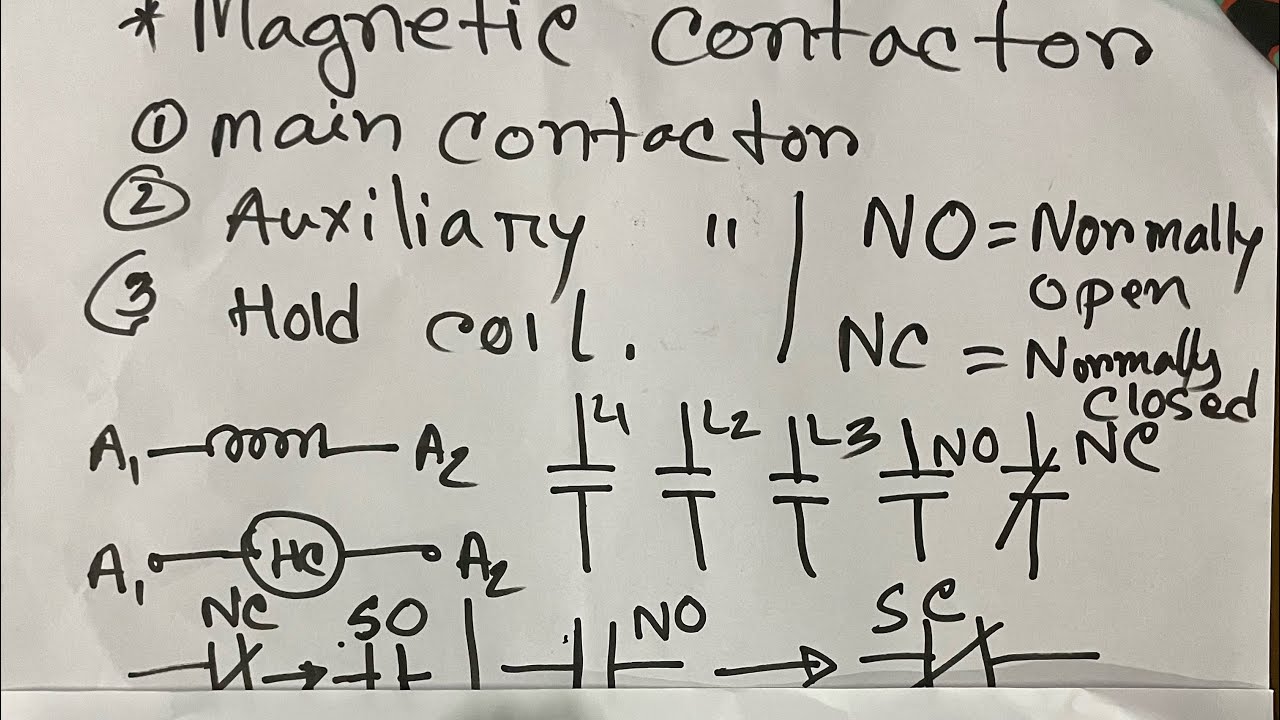 * Magnetic contactor
① main contactor
② Auxiliary "
③ Hold coil.
NO = Normally
open
NC = Normally
closed
A1 A2
L1 L2 L3 NO NC
A1 HC A2
NC SO
NO
SC